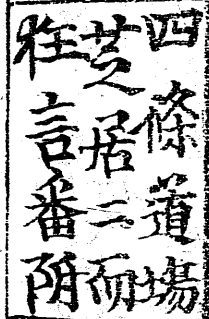 四條道場
芝居ニ而
狂言番附